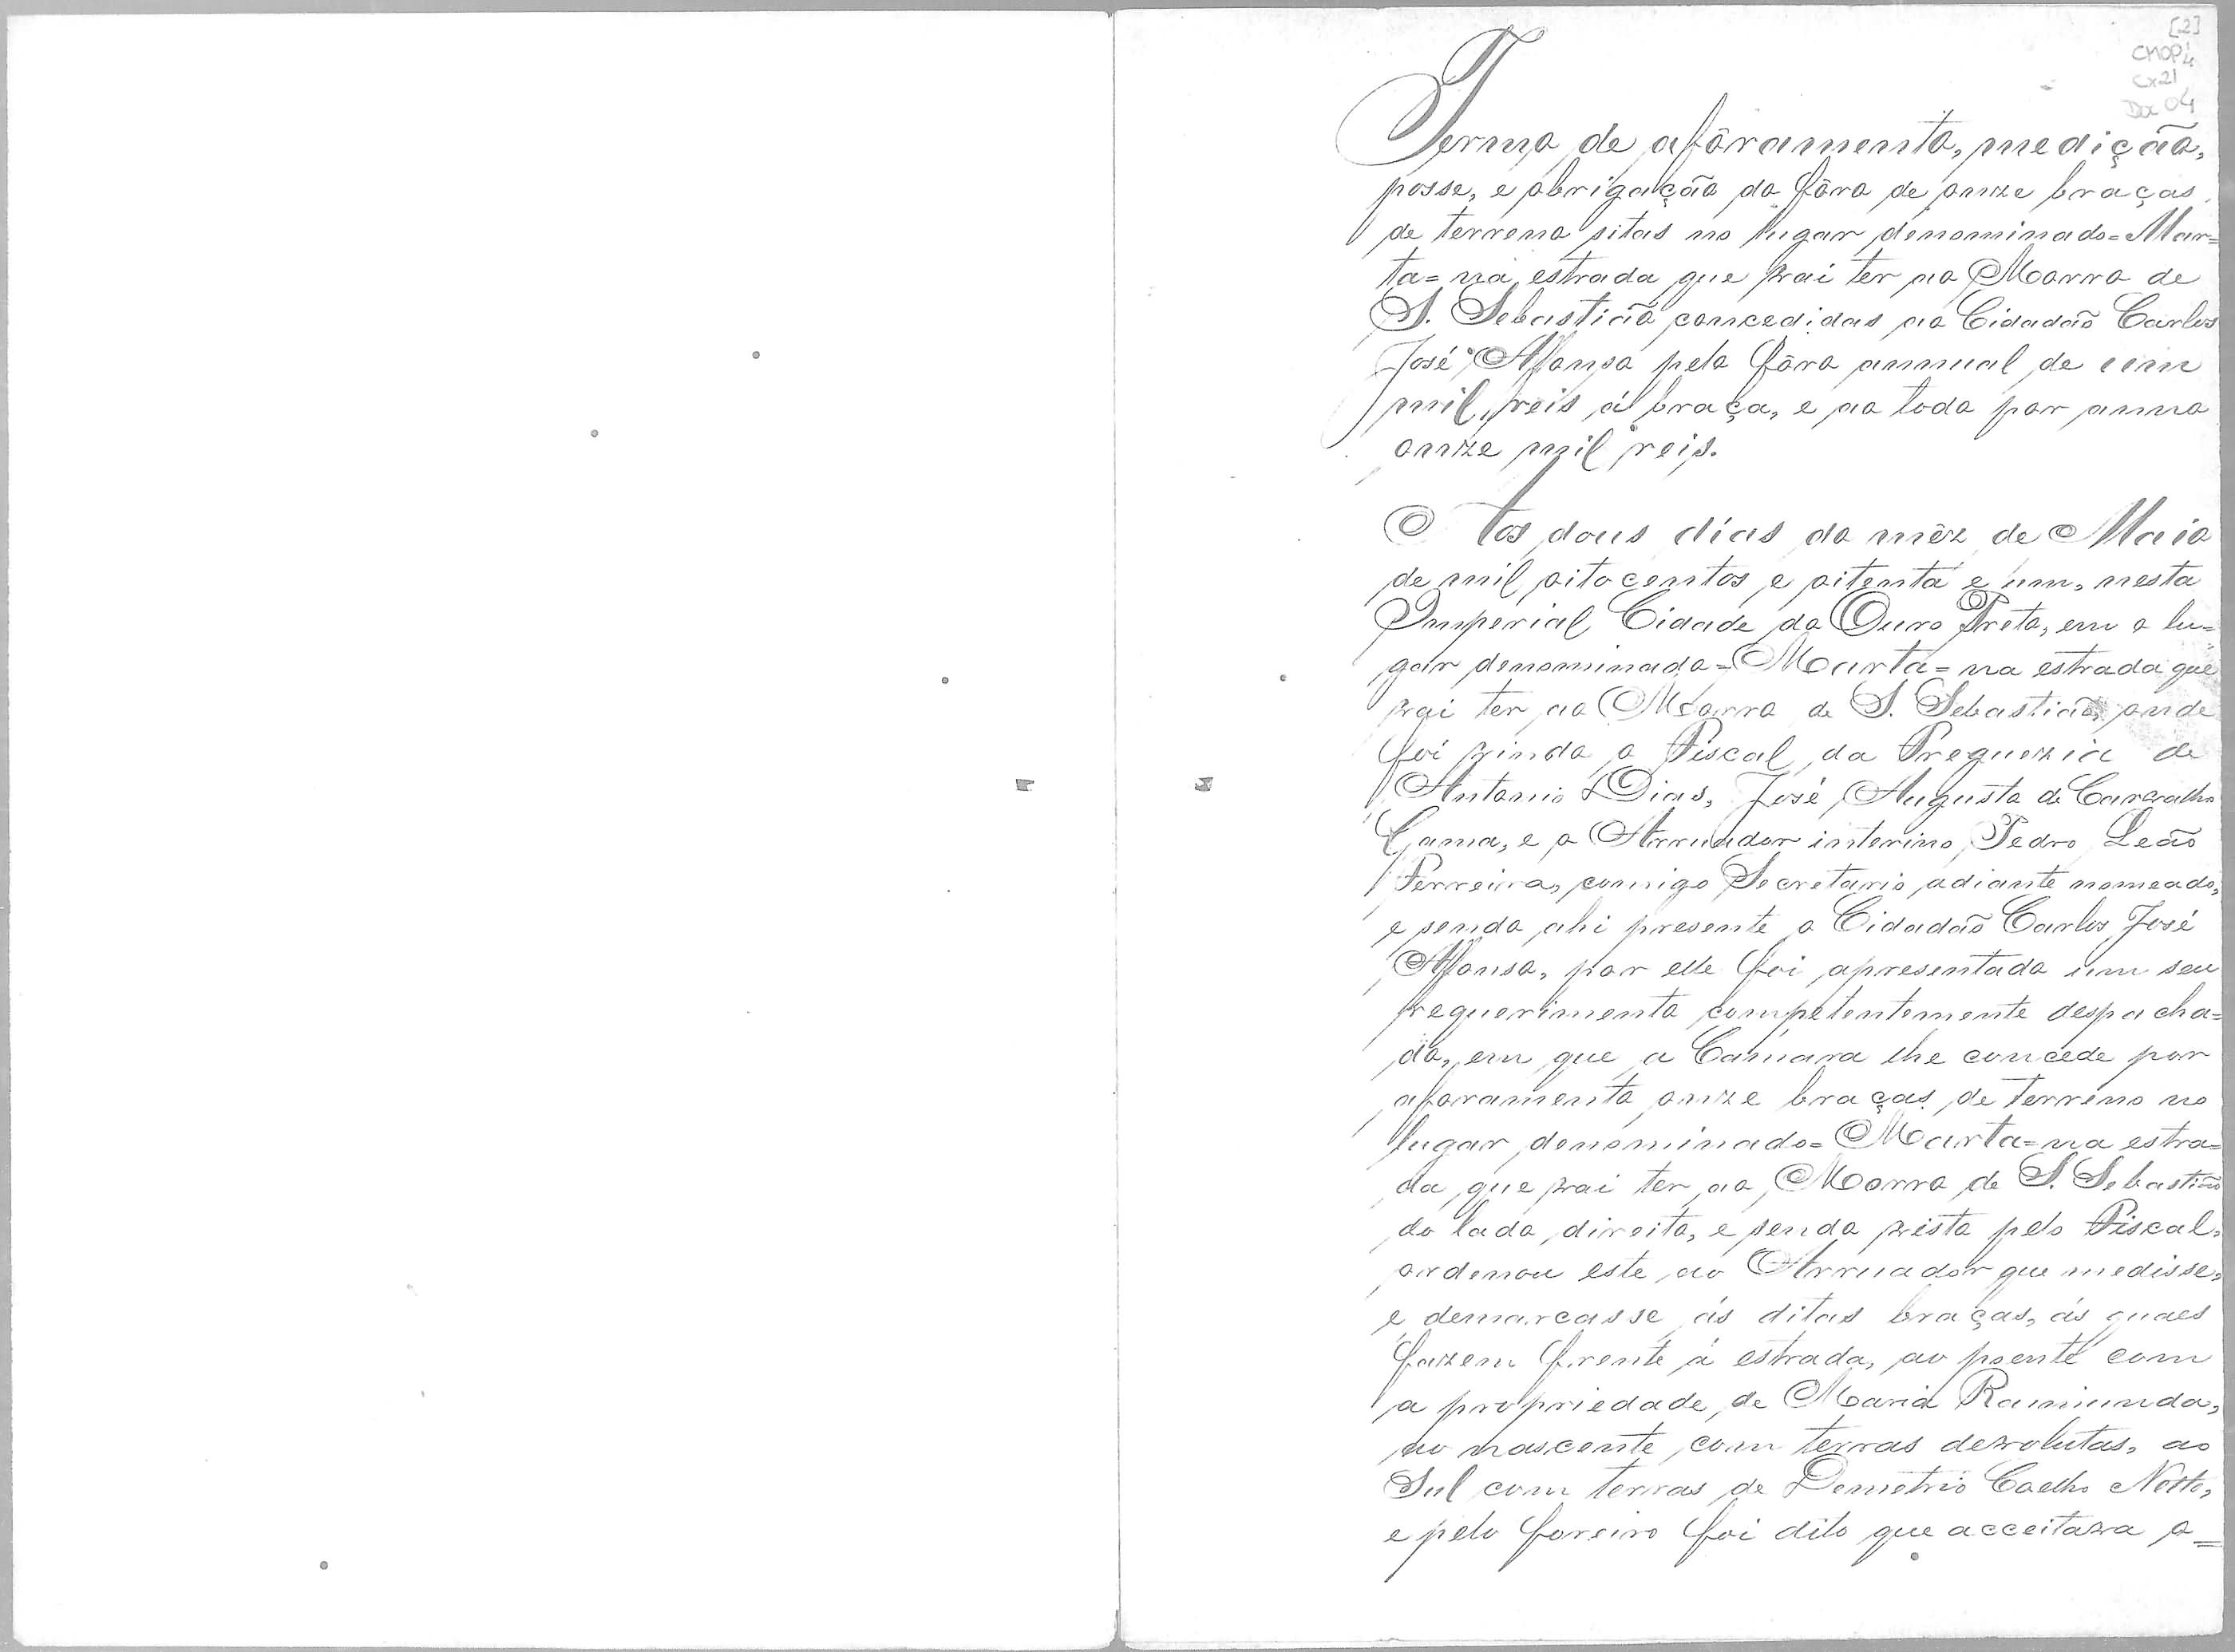 [2]
CMOP
Cx21
Doc 04
Termo de afôramento, medição,
posse, e obrigação do fôro de onze braças
de terreno sitas no lugar denominado=Mar=
ta=na estrada que vai ter ao Morro de
S. Sebastião concedidas ao Cidadão Carlos
José Affonso pelo fôro annual de um
mil reis á braça, e ao todo por anno
onze mil reis.
Aos dous dias do mêz de Maio
de mil oitocentos e oitenta e um, nesta
Imperial Cidade do Ouro Preto, em o lu=
gar denominado=Marta=na estrada que
vai ter ao Morro de S. Sebastião, onde
foi vindo o Fiscal da Freguezia de
Antonio Dias, José Augusto de Carvalho
Gama, e o Arruador interino Pedro Leão
Ferreira, comigo Secretario adiante nomeado,
e sendo ahi presente o Cidadão Carlos José
Affonso, por elle foi apresentado um seu
requerimento competentemente despacha=
do, em que a Camara lhe concede por
aforamento onze braças de terreno no
lugar denominado=Marta=na estra=
da que vai ter ao Morro de S. Sebastião
do lado direito, e sendo visto pelo Fiscal,
ordenou este ao Arruador que medisse,
e demarcasse ás ditas braças, ás quaes
fazem frente á estrada, ao poente com
a propriedade de Maria Raimunda,
ao nascente com terras devolutas, ao
Sul com terras de Demetrio Coelho Netto,
e pelo foreiro foi dito que acceitava o=